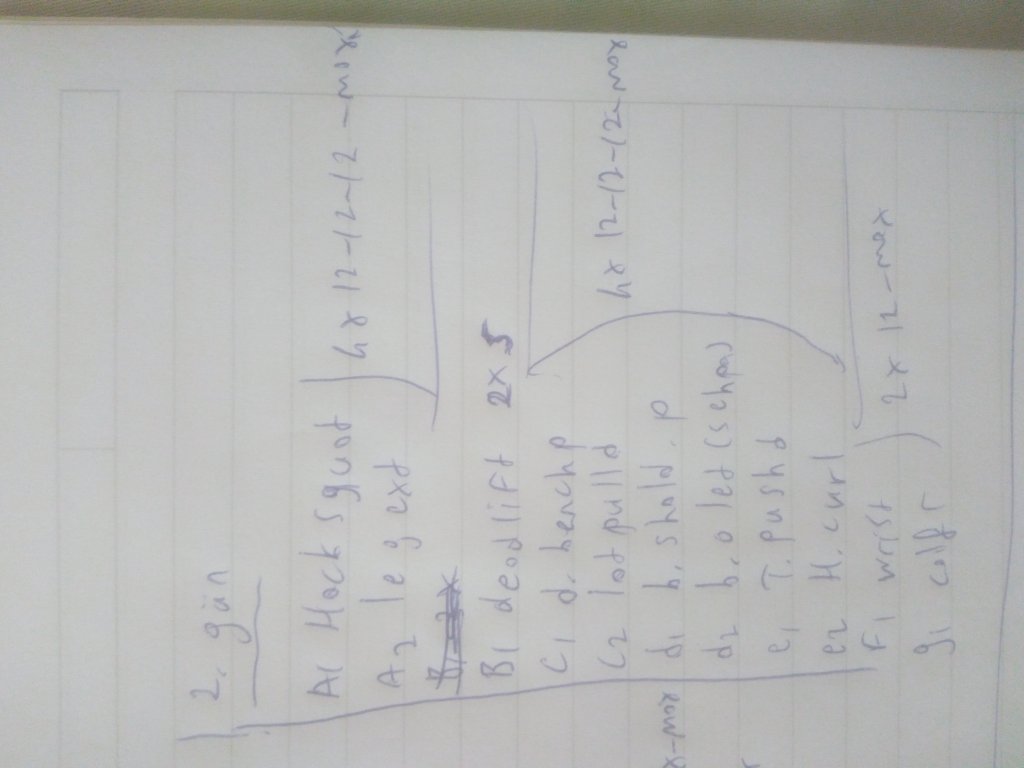 2. gän
A1 Hack squat
A2 leg ext
4x 12-12-12-max
B1 deadlift 2x5
C1 d. bench p
C2 lat pulld
d1 b. shold. p
d2 b. o
e1 T. pushd
e2 H. curl
4x 12-12-12-max
F1 wrist
g1 calf r
2x 12-max
x-max